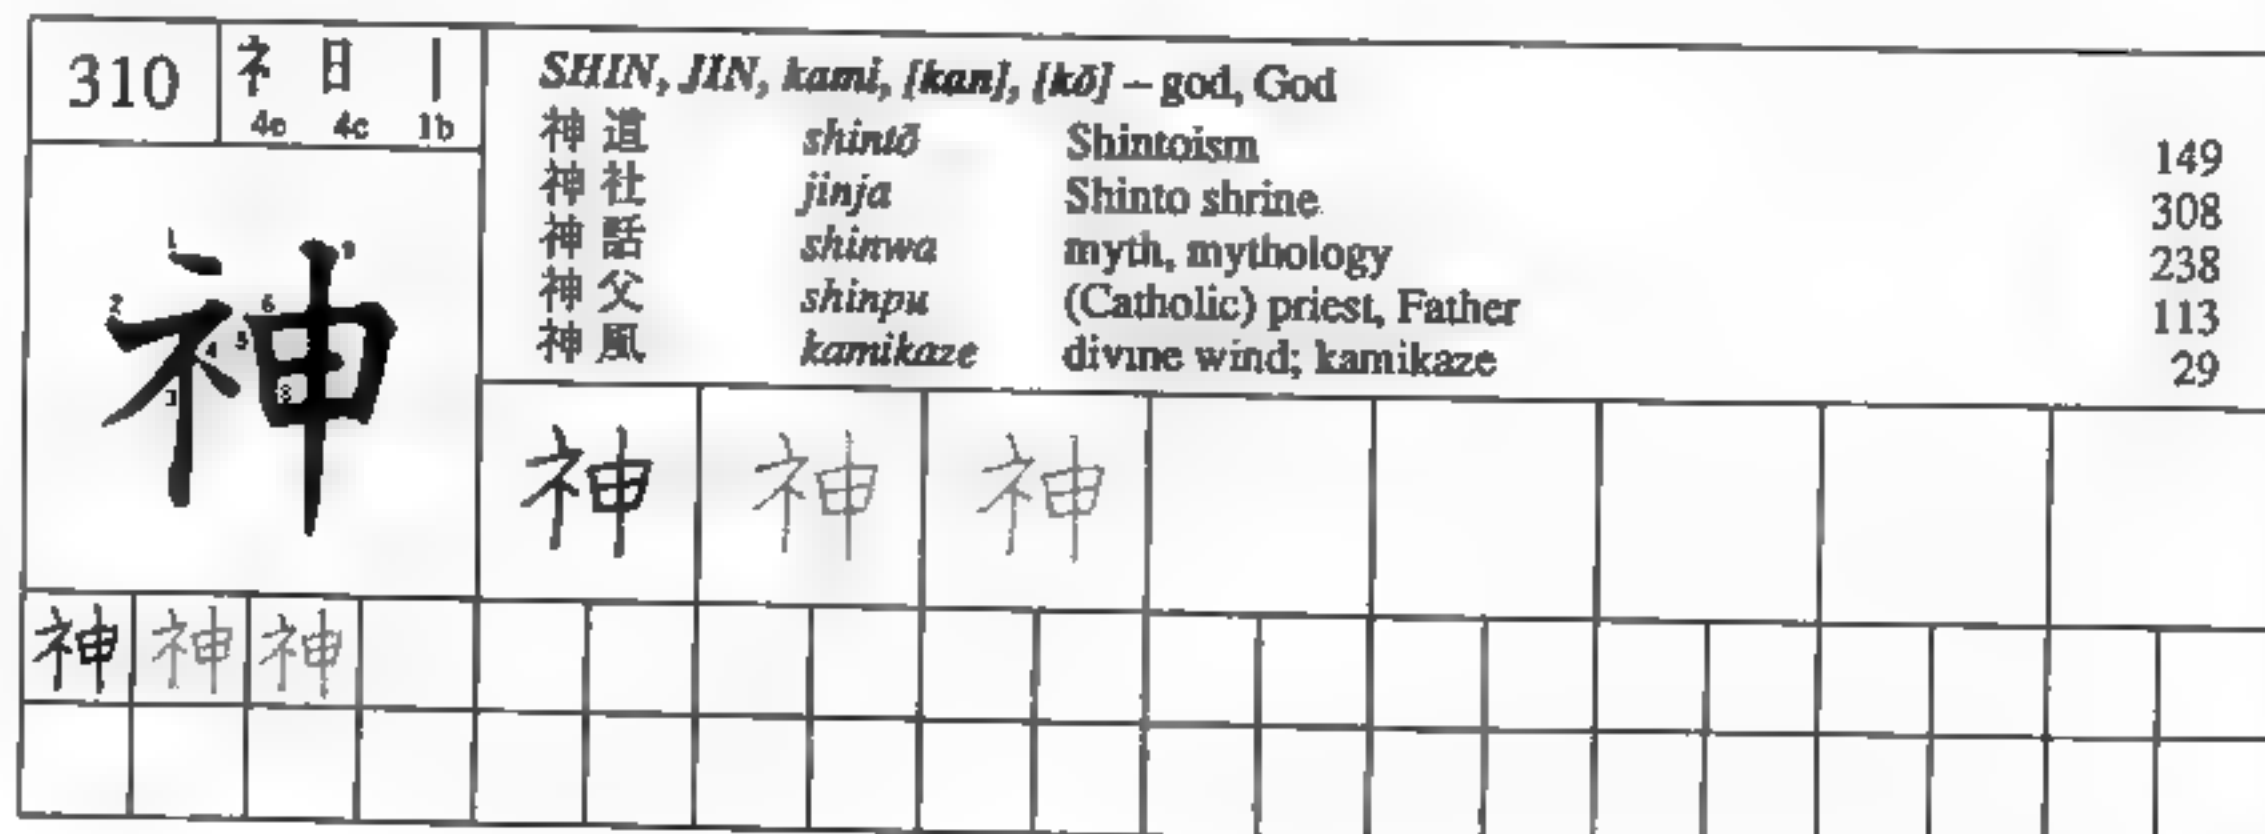 310
礻 日 丨
4e 4c 1b
SHIN, JIN, kami, [kan], [kō] – god, God
神道 shintō Shintoism 149
神社 jinja Shinto shrine 308
神話 shinwa myth, mythology 238
神父 shinpu (Catholic) priest, Father 113
神風 kamikaze divine wind; kamikaze 29
神
1 2 3 4 5 6 8 9
神 神 神
神 神 神